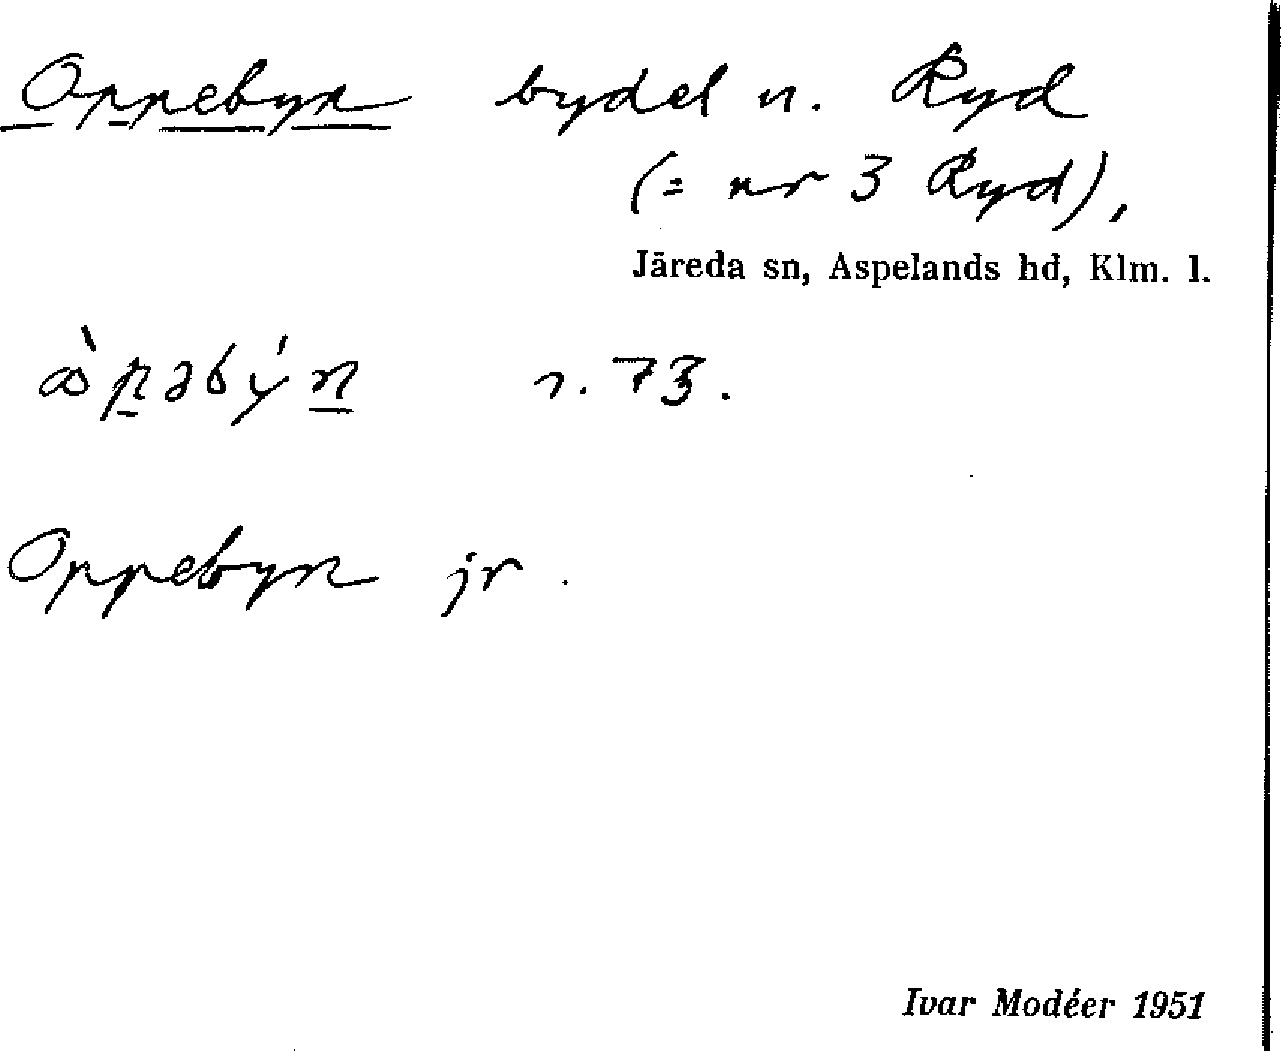 Oppebyn bydel n. Ryd
(= nr 3 Ryd),
Järeda sn, Aspelands hd, Klm. l.
r. 73.
Oppebyn jr.
Ivar Modéer 1951